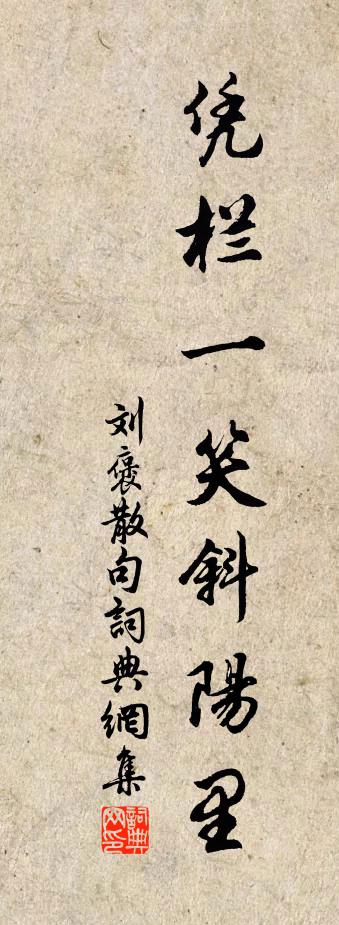 凭栏一笑斜陽里
刘褒散句詞典網集
詞典
网印